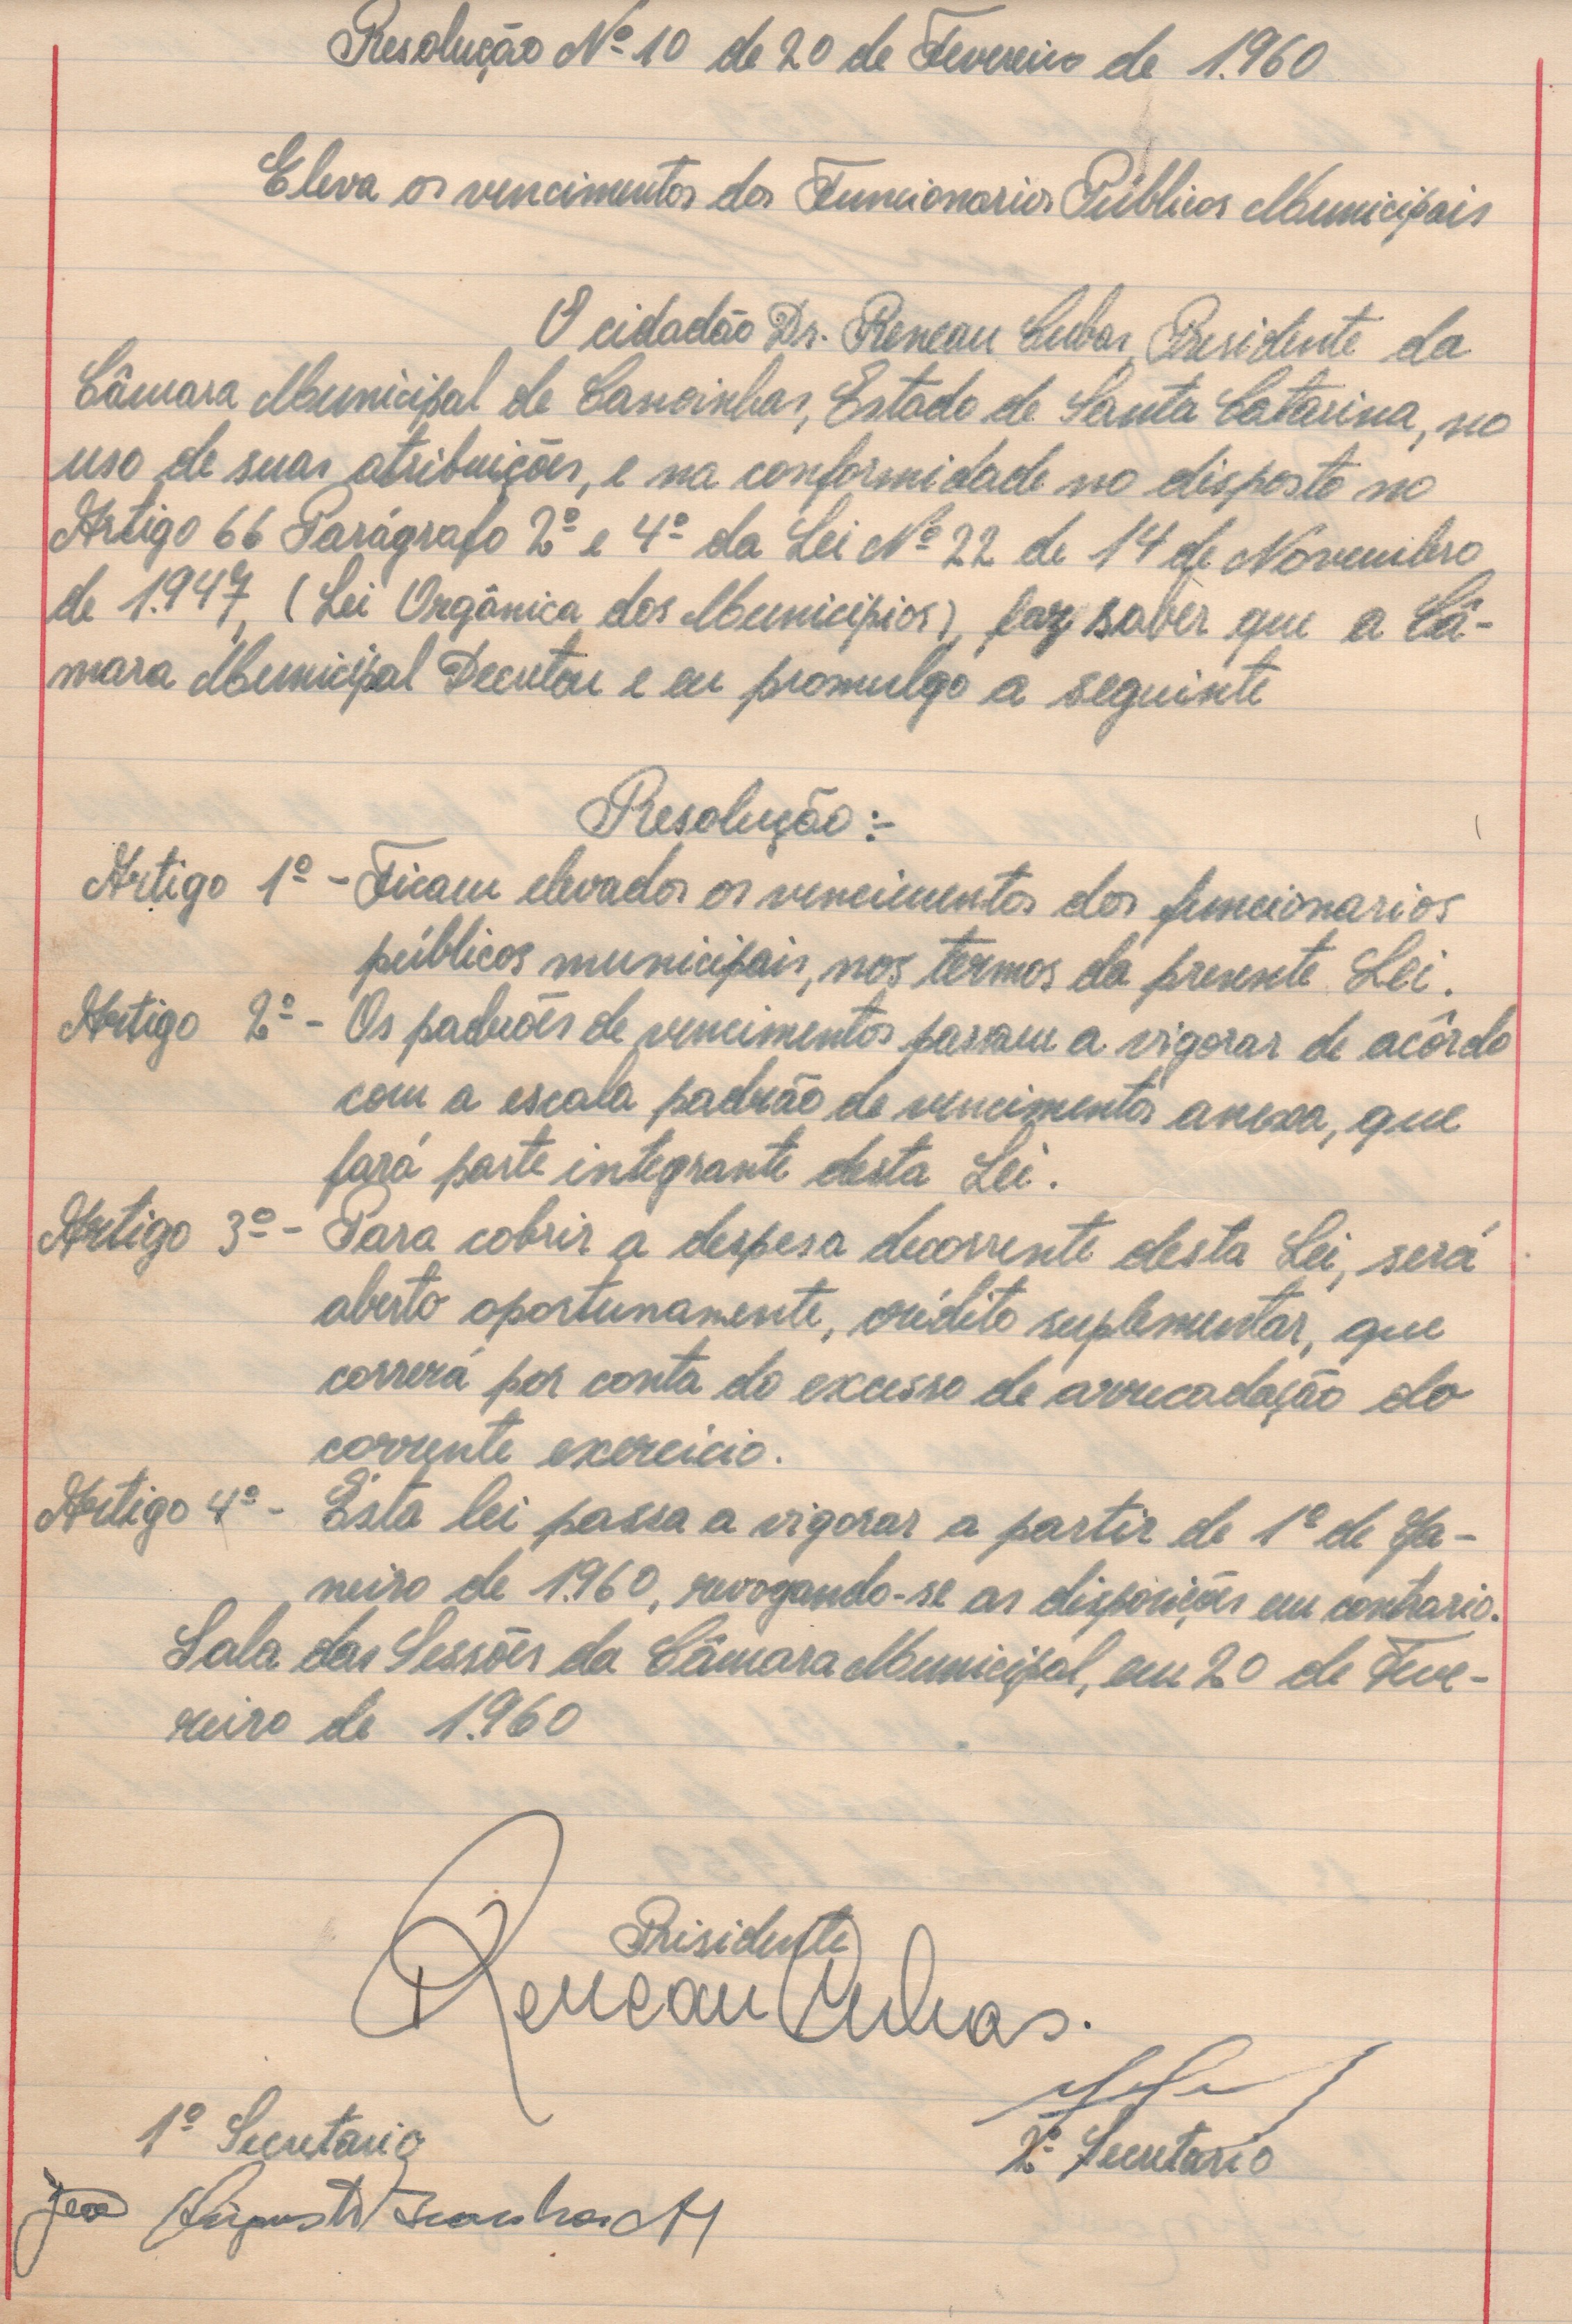 Resolução Nº 10 de 20 de Fevereiro de 1.960
Eleva os vencimentos dos Funcionarios Públicos Municipais
O cidadão Dr. Reneau Cubas, Presidente da
Câmara Municipal de Canoinhas, Estado de Santa Catarina, no
uso de suas atribuições, e na conformidade no disposto no
Artigo 66 Parágrafo 2º e 4º da Lei Nº 22 de 14 de Novembro
de 1.947, (Lei Orgânica dos Municipios), faz saber que a Câ-
mara Municipal Decretou e eu promulgo a seguinte
Resolução:-
Artigo 1º - Ficam elevados os vencimentos dos funcionarios
públicos municipais, nos termos da presente Lei.
Artigo 2º - Os padrões de vencimentos passam a vigorar de acôrdo
com a escala padrão de vencimentos anexa, que
fará parte integrante desta Lei.
Artigo 3º - Para cobrir a despesa decorrente desta Lei, será
aberto oportunamente, crédito suplementar, que
correrá por conta do excesso de arrecadação do
corrente exercicio.
Artigo 4º - Esta lei passa a vigorar a partir de 1º de Ja-
neiro de 1.960, revogando-se as disposições em contrario.
Sala das Sessões da Câmara Municipal, em 20 de Feve-
reiro de 1.960
Presidente
Reneau Cubas.
1º Secretario
2º Secretario
Augusto